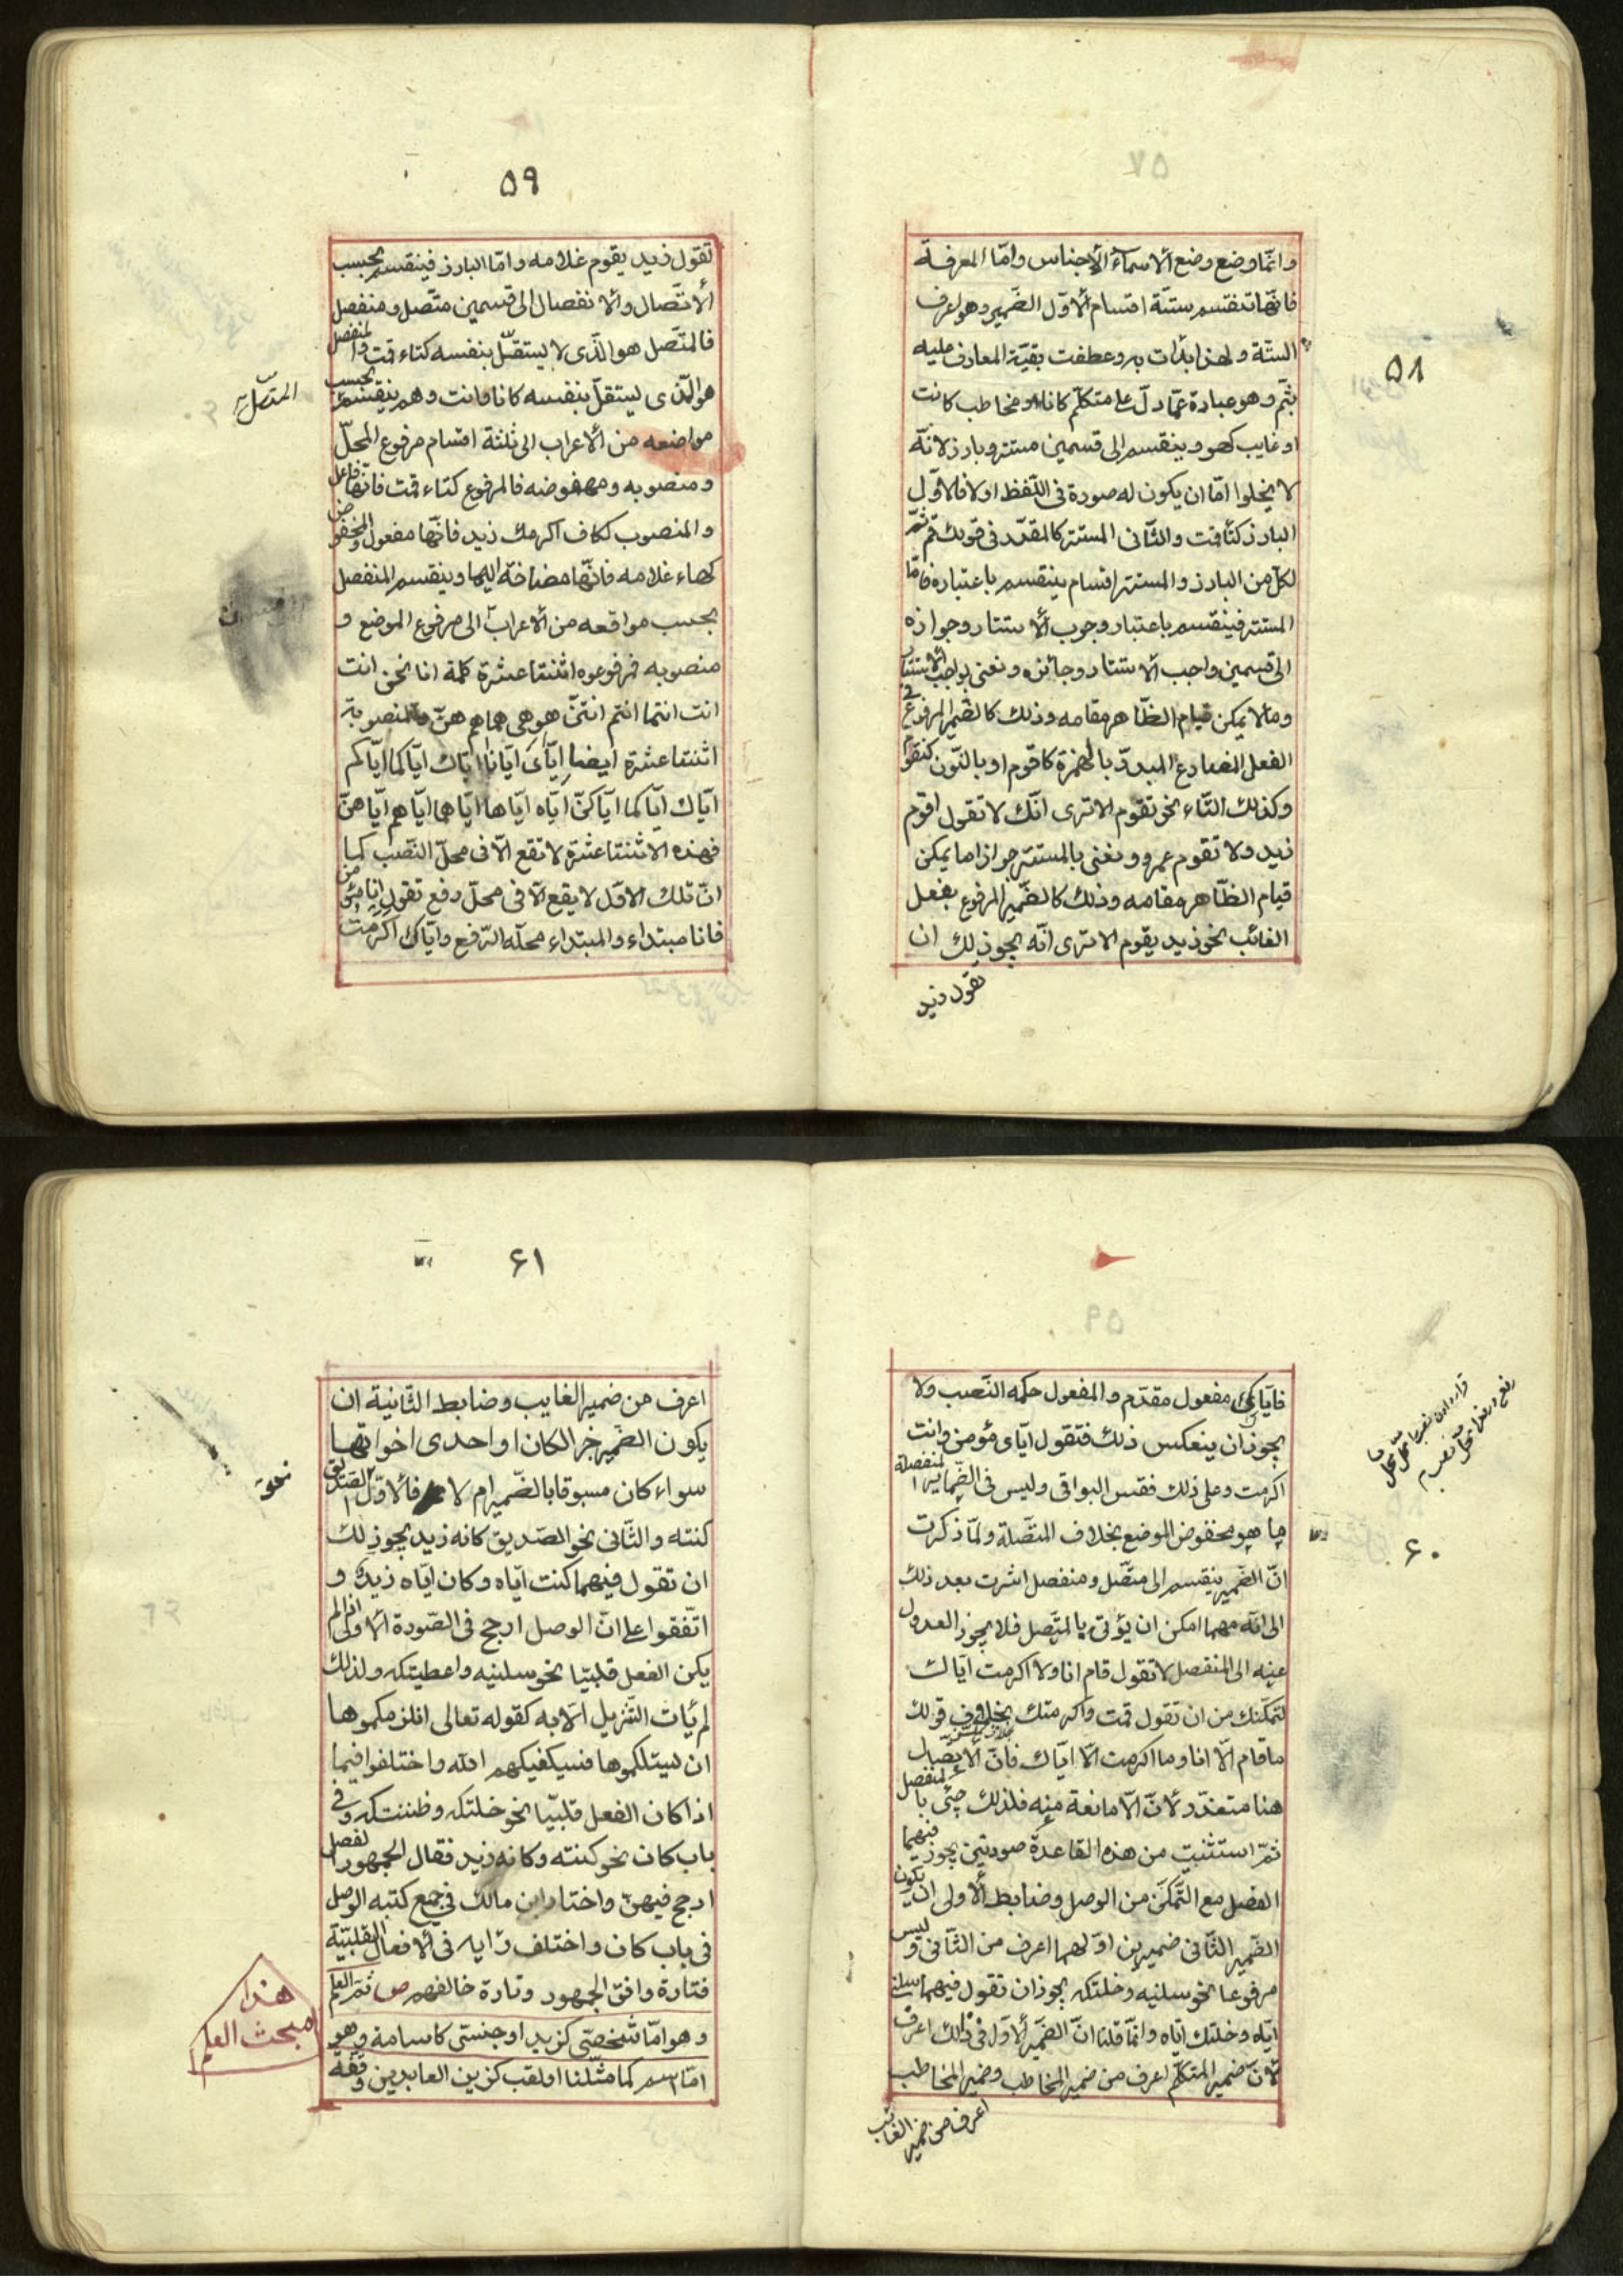 ۵۸
وانّما وضع وضع ألاسماء ألاجناس وامّا المعرفة
فانّها تنقسم ستّة اقسام ألاوّل الضّمير وهو اعرف
السّتّة ولهذا بدأت به وعطفت بقيّة المعارف عليه
بثمّ وهو عبارة عمّا دلّ على متكلّم كانا او مخاطب كانت
او غايب كهو وينقسم الى قسمين مستتر وبارز لانّه
لا يخلوا امّا ان يكون له صورة فى اللّفظ اولا فالاوّل
البارز كتأ قمت والثّانى المستتر كالمقدّر فى قولك قم ثمّ
لكلّ من البارز والمستتر اقسام ينقسم باعتباره فامّا
المستتر فينقسم باعتبار وجوب ألاستتار وجوازه
الى قسمين واجب ألاستتار وجائزه ونعنى بواجب ألاستتار
ومالا يمكن قيام الظّاهر مقامه وذلك كالضّمير المرفوع فى
الفعل المضارع المبدوّ بالهمزة كاقوم او بالنّون كنقوم
وكذلك التّاء نحو تقوم الا ترى انّك لا تقول اقوم
زيد ولا تقوم عمرو ونعنى بالمستتر جوازا ما يمكن
قيام الظّاهر مقامه وذلك كالضّمير المرفوع بفعل
الغائب نحو زيد يقوم الا ترى انّه يجوز لك ان
تقول زيد
۵۹
تقول زيد يقوم غلامه وامّا البارز فينقسم بحسب
ألاتّصال وألانفصال الى قسمين متّصل ومنفصل
فالمتّصل هو الّذى لا يستقلّ بنفسه كتاء قمت والمنفصل
هو الّذى يستقلّ بنفسه كانا وانت وهو ينقسم بحسب
المتّصل
مواضعه من ألاعراب الى ثلثة اقسام مرفوع المحلّ
ومنصوبه ومخفوضه فالمرفوع كتاء قمت فانّها فاعل
والمنصوب ككاف اكرمك زيد فانّها مفعول والمخفوض
كهاء غلامه فانّها مضافة اليها وينقسم المنفصل
بحسب مواقعه من ألاعراب الى مرفوع الموضع و
منصوبه فمرفوعه اثنتا عشرة كلمة انا نحن انت
انت انتما انتم انتنّ هو هى هما هم هنّ ومنصوبة
اثنتا عشرة ايضا ايّاى ايّانا ايّاك ايّاكما ايّاكم
ايّاك ايّاكما ايّاكنّ ايّاه ايّاها ايّاهما ايّاهم ايّاهنّ
فهذه الاثنتا عشرة لا تقع الّا فى محلّ النّصب كما
انّ تلك الاوّل لا يقع الّا فى محلّ رفع تقول انا مؤمن
فانا مبتداء والمبتداء محلّه الرّفع وايّاك اكرمت
۶۰
فايّاك مفعول مقدّم والمفعول حكمه النّصب ولا
يجوز ان ينعكس ذلك فتقول ايّاى مؤمن وانت
اكرمت وعلى ذلك فقس البواقى وليس فى الضّماير المنفصلة
ما هو مخفوض الموضع بخلاف المتّصلة ولمّا ذكرت
انّ الضّمير ينقسم الى متّصل ومنفصل اشرت بعد ذلك
الى انّه مهما امكن ان يؤتى بالمتّصل فلا يجوز العدول
عنه الى المنفصل لا تقول قام انا ولا اكرمت ايّاك
لتمكّنك من ان تقول قمت واكرمتك بخلاف قولك
ما قام الّا انا وما اكرمت الّا ايّاك فانّ ألاتّصال
هنا متعذّر لأنّ الّا مانعة منه فلذلك جئى بالمنفصل
ثمّ استثنيت من هذه القاعدة صورتين يجوز فيهما
الفصل مع التّمكّن من الوصل وضابط ألاولى ان يكون
الضّمير الثّانى ضميرين اوّلهما اعرف من الثّانى وليس
مرفوعا نحو سلنيه وخلتكه يجوز ان تقول فيهما سلنى
ايّاه وخلتك ايّاه وانّما قلنا انّ الضّمير ألاوّل فى ذلك اعرف
لأنّ ضمير المتكلّم اعرف من ضمير المخاطب وضمير المخاطب
اعرف من ضمير الغائب
۶۱
اعرف من ضمير الغايب وضابط الثّانية ان
يكون الضّمير خبر الكان او احدى اخواتها
سواء كان مسبوقا بالضّمير ام لا فألاوّل الصّديق
كنته والثّانى نحو الصّديق كانه زيد يجوز لك
ان تقول فيهما كنت ايّاه وكان ايّاه زيد و
اتّفقوا على انّ الوصل ارجح فى الصّورة ألاولى اذا لم
يكن الفعل قلبيّا نحو سلنيه واعطيتكه ولذلك
لم يأت التّنزيل الّا به كقوله تعالى انلزمكموها
ان يسئلكموها فسيكفيكهم الله واختلفوا فيما
اذا كان الفعل قلبيّا نحو خلتكه وظننتكه وفى
باب كان نحو كنته وكانه زيد فقال الجمهور الفصل
ارجح فيهنّ واختار ابن مالك فى جميع كتبه الوصل
فى باب كان واختلف رايه فى ألافعال القلبيّة
فتارة وافق الجمهور وتارة خالفهم ص ثمّ العلم
وهو امّا شخصّى كزيد او جنسّى كاسامة وهو
امّا اسم كما مثّلنا او لقب كزين العابدين وقفّة
نحو
هذا
مبحث العلم